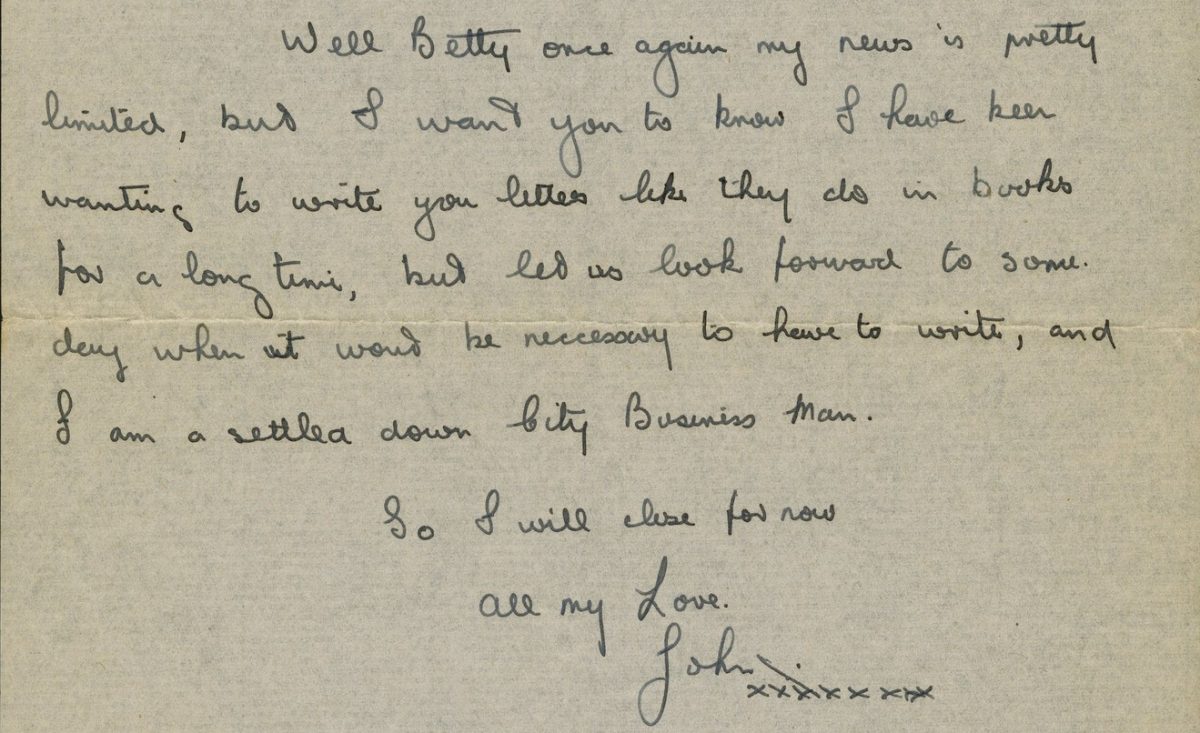 Well Betty once again my news is pretty
limited, but I want you to know I have been
wanting to write you letters like they do in books
for a long time, but let us look forward to some.
day when it wont be neccessary to have to write, and
I am a settled down City Business Man.
So I will close for now
all my Love.
John
xxxxxxxx